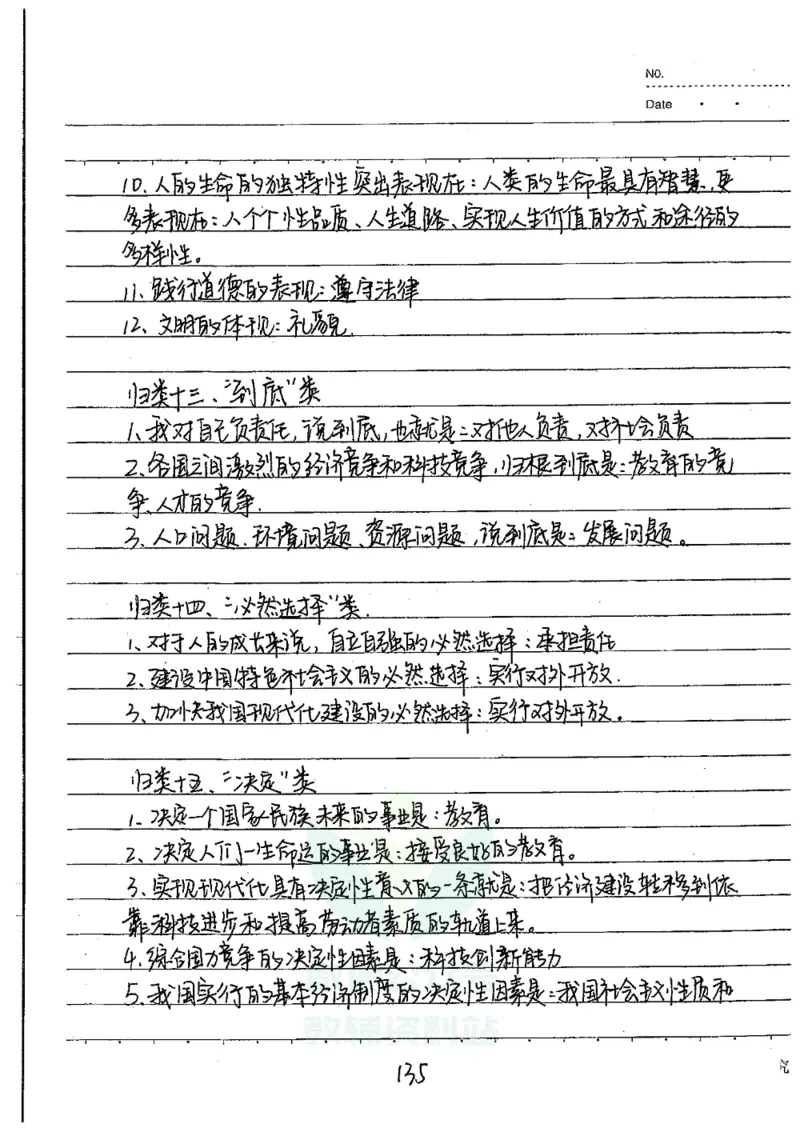 No.
Date
10、人的生命的独特性突出表现在:人类的生命最具有智慧、更
多表现在:人个个性品质、人生道路、实现人生价值的方式和途径的
多样性。
11、践行道德的表现:遵守法律
12、文明的体现:礼貌
归类十三、“到底”类
1、我对自己负责任,说到底,也就是:对他人负责,对社会负责
2、各国之间激烈的经济竞争和科技竞争,归根到底是:教育的竞
争、人才的竞争.
3、人口问题、环境问题、资源问题,说到底是:发展问题。
归类十四、“必然选择”类.
1、对于人的成长来说,自立自强的必然选择:承担责任
2、建设中国特色社会主义的必然选择:实行对外开放.
3、加快我国现代化建设的必然选择:实行对外开放。
归类十五、“决定”类
1、决定一个国家民族未来的事业是:教育。
2、决定人们一生命运的事业是:接受良好的教育。
3、实现现代化具有决定性意义的一条就是:把经济建设转移到依
靠科技进步和提高劳动者素质的轨道上来。
4、综合国力竞争的决定性因素是:科技创新能力
5、我国实行的基本经济制度的决定性因素是:我国社会主义性质和
教辅资料站
135